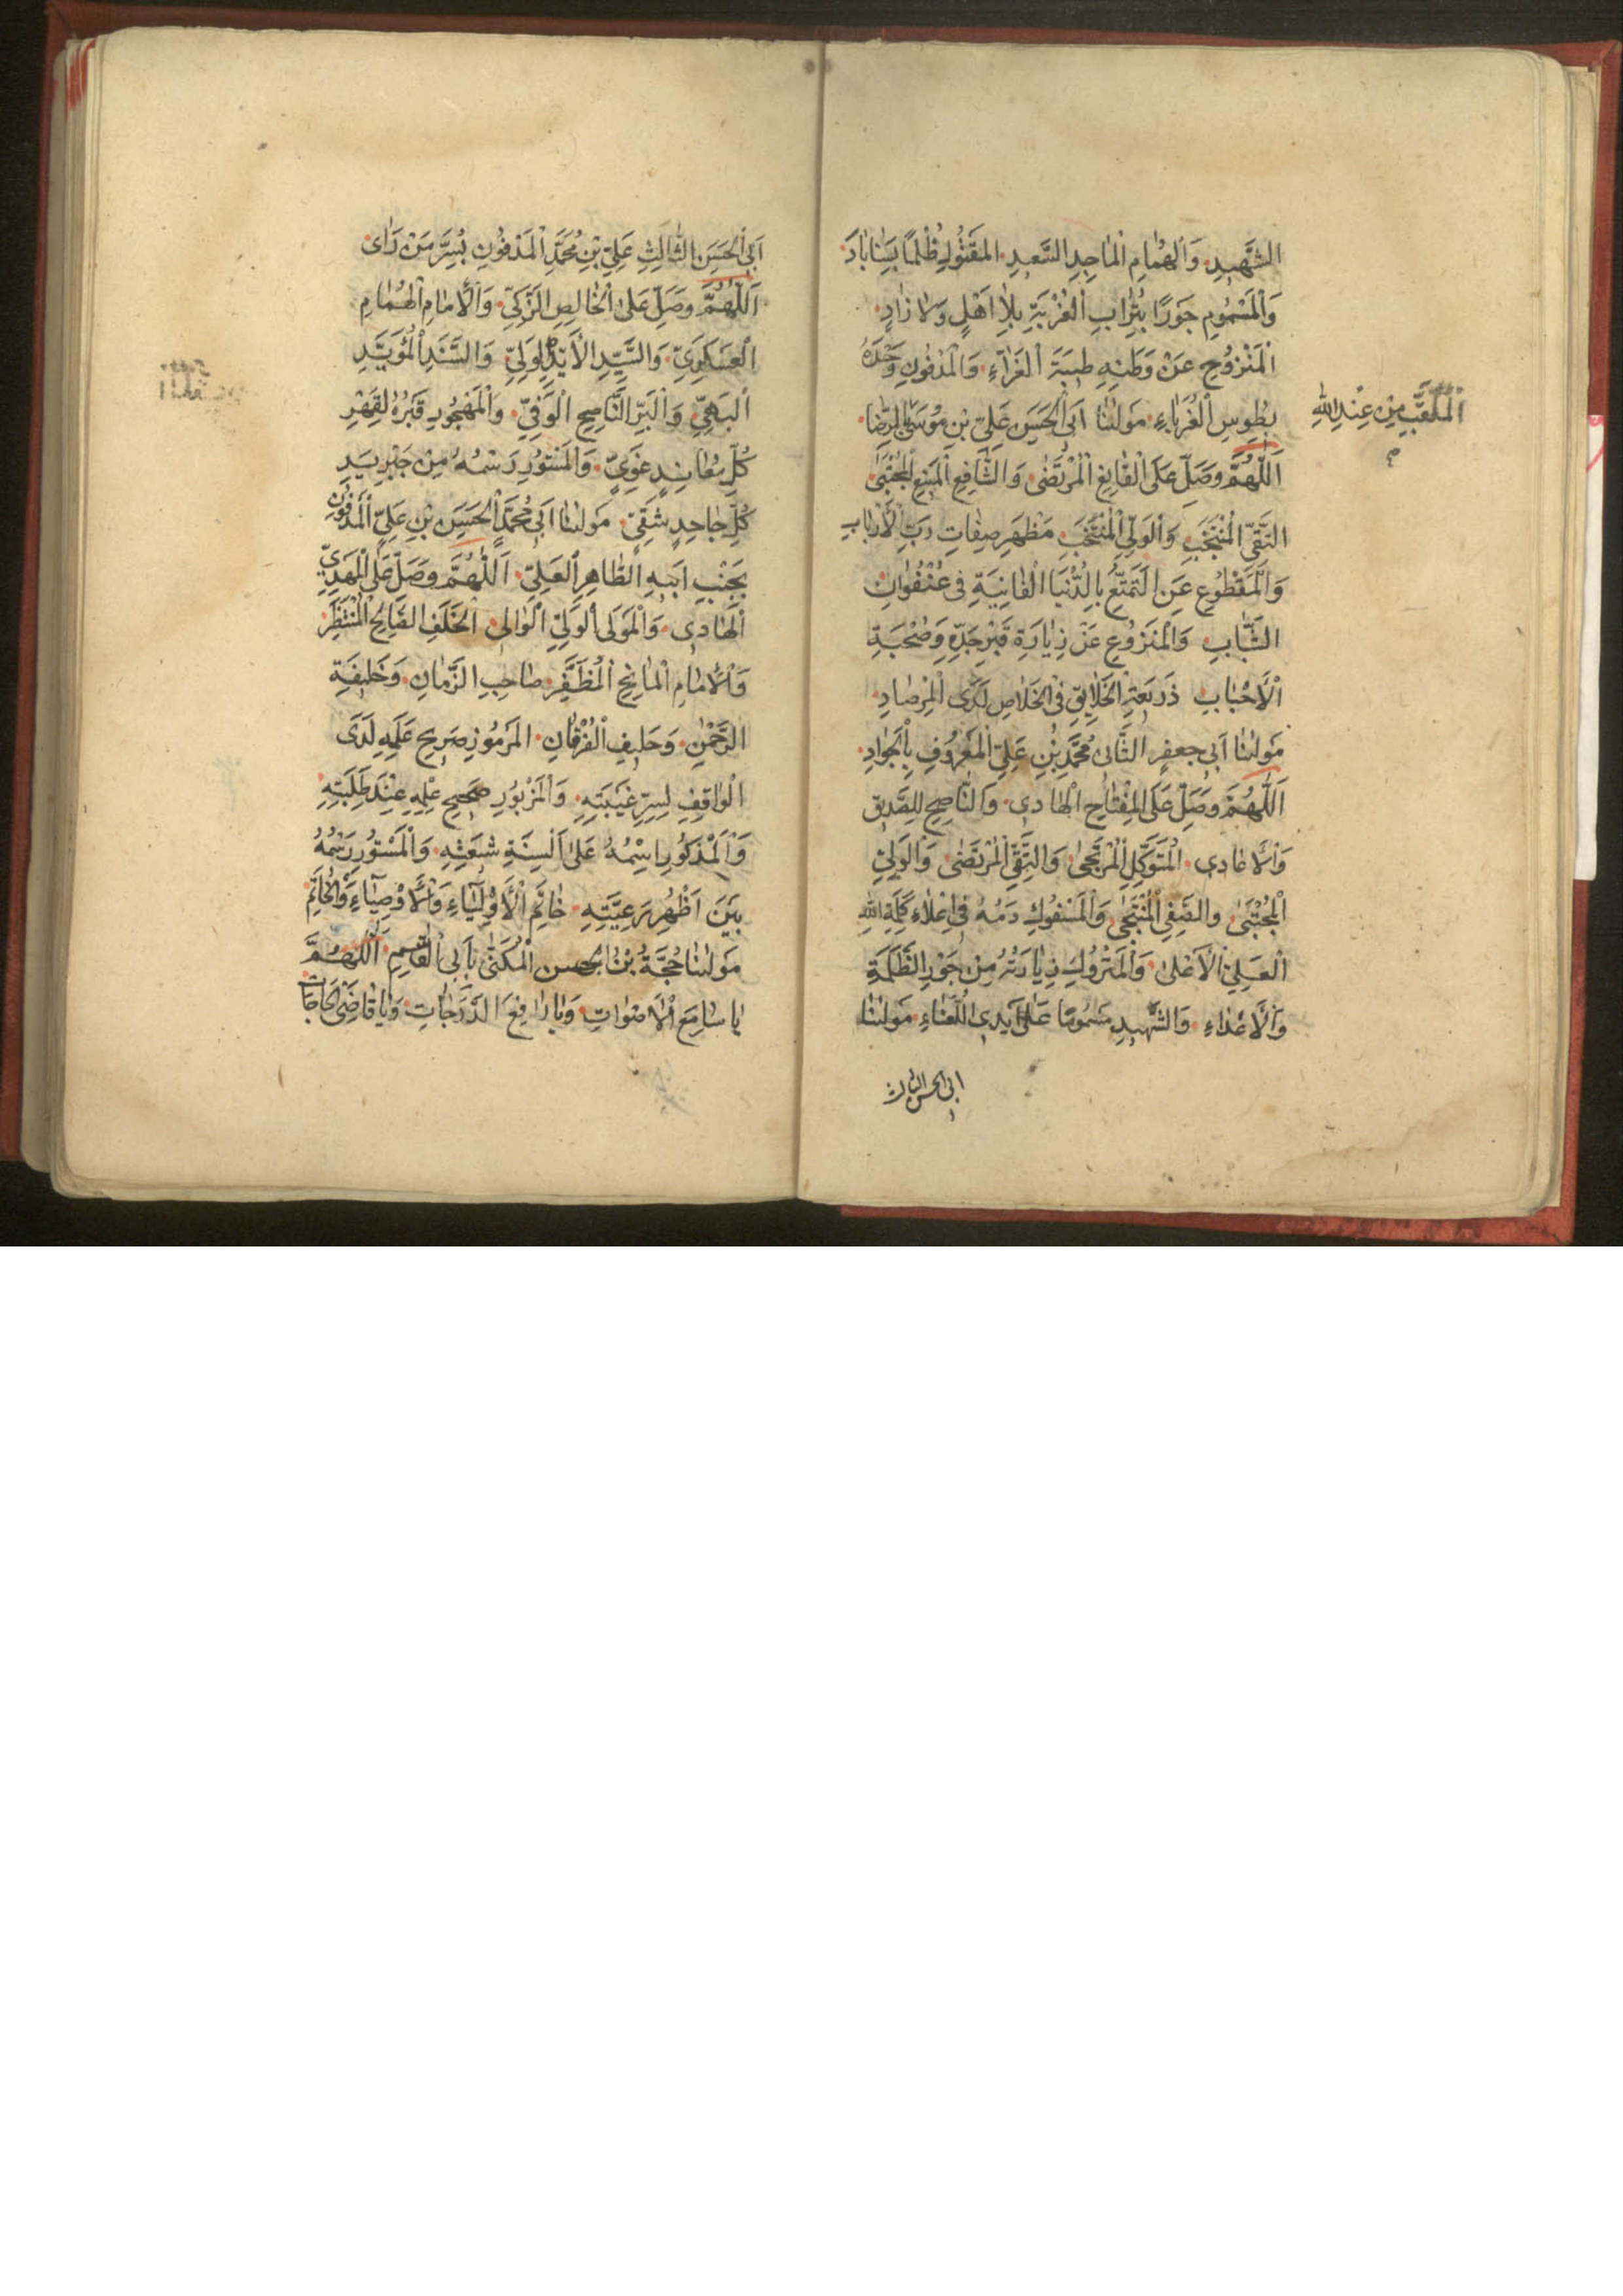 الشَّهِيدِ وَالْهُمٰامِ الْمٰاجِدِ السَّعِيدِ الْمَقْتُولِ ظُلْمًا بِسَنٰابٰادَ
وَالْمَسْمُومِ جَوْرًا بِتُرٰابِ الْغُرْبَةِ بِلاٰ اَهْلٍ وَلاٰ زٰادٍ
الْمَنْزُوحِ عَنْ وَطَنِهِ طِيبَةَ الْغَرّٰآءِ وَالْمَدْفُونِ وَحْدَهُ
بِطُوسِ الْغُرَبٰاءِ مَوْلٰنٰا اَبِى الْحَسَنِ عَلِيِّ بْنِ مُوسَى الرِّضٰا
الْمُلَقَّبِ مِنْ عِنْدِ اللهِ
اَللّٰهُمَّ وَصَلِّ عَلَى الْقٰانِعِ الْمُرْتَضٰى وَالشّٰافِعِ الْمُجْتَبٰى
التَّقِيِّ الْمُنْتَجَبِ وَالْوَلِيِّ الْمُنْتَخَبِ مَظْهَرِ صِفٰاتِ رَبِّ الْاَرْبٰابِ
وَالْمَقْطُوعِ عَنِ التَّمَتُّعِ بِالدُّنْيَا الْفٰانِيَةِ فِى عُنْفُوٰانِ
الشَّبٰابِ وَالْمَنْزُوعِ عَنْ زِيٰارَةِ قَبْرِ جَدِّهِ وَصُحْبَةِ
الْاَحْبٰابِ ذَرِيعَةِ الْخَلٰايِقِ فِى الْخَلٰاصِ لَدَى الْمِرْصٰادِ
مَوْلٰنٰا اَبِى جَعْفَرٍ الثَّانِى مُحَمَّدِ بْنِ عَلِيٍّ الْمَعْرُوفِ بِالْجَوٰادِ
اَللّٰهُمَّ وَصَلِّ عَلَى الْمِفْتٰاحِ الْهٰادِى وَالنّٰاصِحِ لِلصَّدِيقِ
وَالْاَعٰادِى الْمُتَوَكِّلِ الْمُرْتَجىٰ وَالتَّقِيِّ الْمُرْتَضٰى وَالْوَلِيِّ
الْمُجْتَبٰى وَالصَّفِيِّ وَالْمَسْفُوكِ دَمُهُ فِى اِعْلٰاءِ كَلِمَةِ اللهِ
الْعَلِيِّ الْاَعْلىٰ وَالْمَتْرُوكِ زِيٰارَتُهُ مِنْ جَوْرِ الظَّلَمَةِ
وَالْاَعْدٰاءِ وَالشَّهِيدِ مَسْمُومًا عَلىٰ اَيْدِى اللُّعَنٰاءِ مَوْلٰنٰا
ابى الحسن الثالث
اَبِى الْحَسَنِ الثّٰالِثِ عَلِيِّ بْنِ مُحَمَّدٍ الْمَدْفُونِ بِسُرَّ مَنْ رَاٰى
اَللّٰهُمَّ وَصَلِّ عَلَى الْخٰالِصِ الزَّكِيِّ وَالْاِمٰامِ الْهُمٰامِ
الْعَسْكَرِيِّ وَالسَّيِّدِ الْاَيِّدِ الْوَلِيِّ وَالسَّنَدِ الْمُؤَيَّدِ
الْبَهِيِّ وَالْبَرِّ النّٰاصِحِ الْوَفِيِّ وَالْمَهْجُورِ قَبْرُهُ لِقَهْرِ
كُلِّ مُعٰانِدٍ غَوِيٍّ وَالْمَسْتُورِ رَسْمُهُ مِنْ جَبْرِ يَدِ
كُلِّ جٰاحِدٍ شَقِيٍّ مَوْلٰنٰا اَبِى مُحَمَّدٍ الْحَسَنِ بْنِ عَلِيٍّ الْمَدْفُونِ
بِجَنْبِ اَبِيهِ الطّٰاهِرِ الْعَلِيِّ اَللّٰهُمَّ وَصَلِّ عَلَى الْمَهْدِيِّ
الْهٰادِى وَالْمَوْلَى الْوَلِيِّ الْوٰالِى الْخَلَفِ الصّٰالِحِ الْمُنْتَظَرِ
وَالْاِمٰامِ الْمٰانِحِ الْمُظَفَّرِ صٰاحِبِ الزَّمٰانِ وَخَلِيفَةِ
الرَّحْمٰنِ وَحَلِيفِ الْفُرْقٰانِ الْمَرْمُوزِ صَرِيحِ عَلَمِهِ لَدَى
الْوٰاقِفِ لِسِرِّ غَيْبَتِهِ وَالْمَزْبُورِ صَحِيحِ عِلْمِهِ عِنْدَ طَلَبَتِهِ
وَالْمَذْكُورِ اِسْمُهُ عَلىٰ اَلْسِنَةِ شِيعَتِهِ وَالْمَسْتُورِ رَسْمُهُ
بَيْنَ اَظْهُرِ رَعِيَّتِهِ خٰاتَمِ الْاَوْلِيٰاءِ وَالْاَوْصِيٰاءِ وَالْخٰاتِمِ
مَوْلٰنٰا حُجَّةُ بْنُ الْحَسَنِ الْمُكَنّٰى بِاَبِى الْقٰاسِمِ اَللّٰهُمَّ
يٰا سٰامِعَ الْاَصْوٰاتِ وَيٰا رٰافِعَ الدَّرَجٰاتِ وَيٰا قٰاضِىَ الْحٰاجٰاتِ